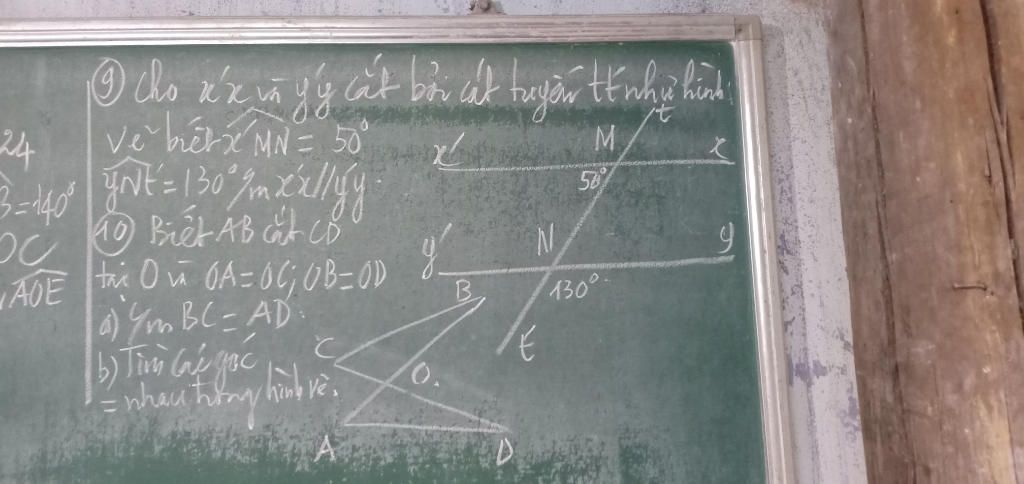 24
B̂=140°
OC
AOE
⑨ Cho x'x và y'y cắt bởi cát tuyến tt' như hình
vẽ biết x'MN = 50°
yNt' = 130° C/m x'x // y'y.
⑩ Biết AB cắt CD
tại O và OA=OC; OB=OD
a) C/m BC = AD.
b) Tìm các góc
= nhau trong hình vẽ.
t
x' M x
50°
y' N y
130°
t'
B
C
O.
A D